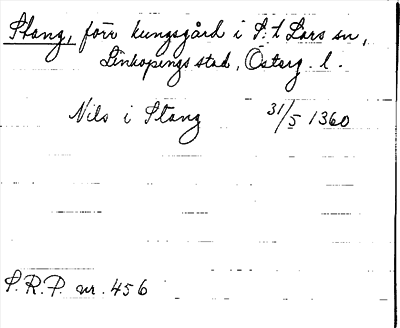 Stang, förr kungsgård i S:t Lars sn,
Linköpings stad, Österg. l.
Nils i Stang 31/5 1360
S.R.P. nr. 456